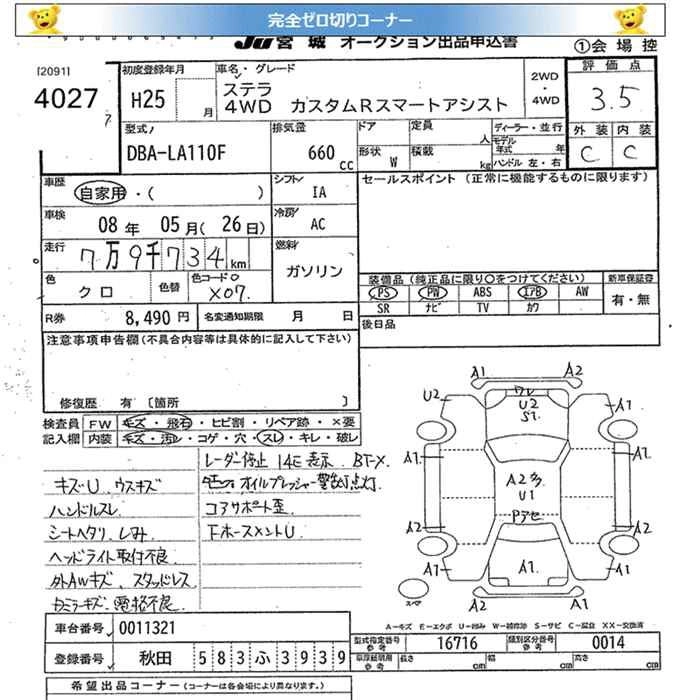 完全ゼロ切りコーナー
JU宮城 オークション出品申込書
①会場控
[2091]
4027
初度登録年月
H25 月
車名・グレード
ステラ
4WD カスタムRスマートアシスト
2WD
・
4WD
評価点
3.5
外装 内装
C C
型式
DBA-LA110F
排気量
660 cc
ドア
定員 人
ディーラー・並行
モデル年式 年
形状 W
積載 kg
ハンドル 左・右
車歴
自家用・( )
シフト
IA
セールスポイント (正常に機能するものに限ります)
車検
08年 05月(26日)
冷房
AC
走行
7万9千734km
燃料
ガソリン
色
クロ
色替
色コードNo
X07
装備品(純正品に限り○をつけてください)
新車保証書
PS PW ABS エアB AW
SR ナビ TV カワ
有・無
R券 8,490円
名変通知期限 月 日
後日品
注意事項申告欄(不具合内容等は具体的に記入して下さい)
修復歴 有〔箇所 〕
検査員記入欄
FW キズ・飛石・ヒビ割・リペア跡・×要
内装 キズ・汚レ・コゲ・穴・スレ・キレ・破レ
レーダー停止 14E表示 BT-X
オイルプレッシャー警告灯点灯
コアサポート歪
キズU ウスキズ
ハンドルスレ
シートヘタリ、しみ
ヘッドライト取付不良
外AWキズ、スタッドレス
A1 A2
U2 ワレ A1
U2
S1
A1 A1
A2多
U1
Pアセ
A2 A2
A1 A1 A1
A2 A1
スペア
A-キズ E-エクボ U-凹み W-補修跡 S-サビ C-腐食 XX-交換済
車台番号 0011321
型式指定番号 16716
類別区分番号 0014
登録番号 秋田 583 ふ 3939
長さ cm 幅 cm 高さ cm
希望出品コーナー (コーナーは各会場により異なります。)